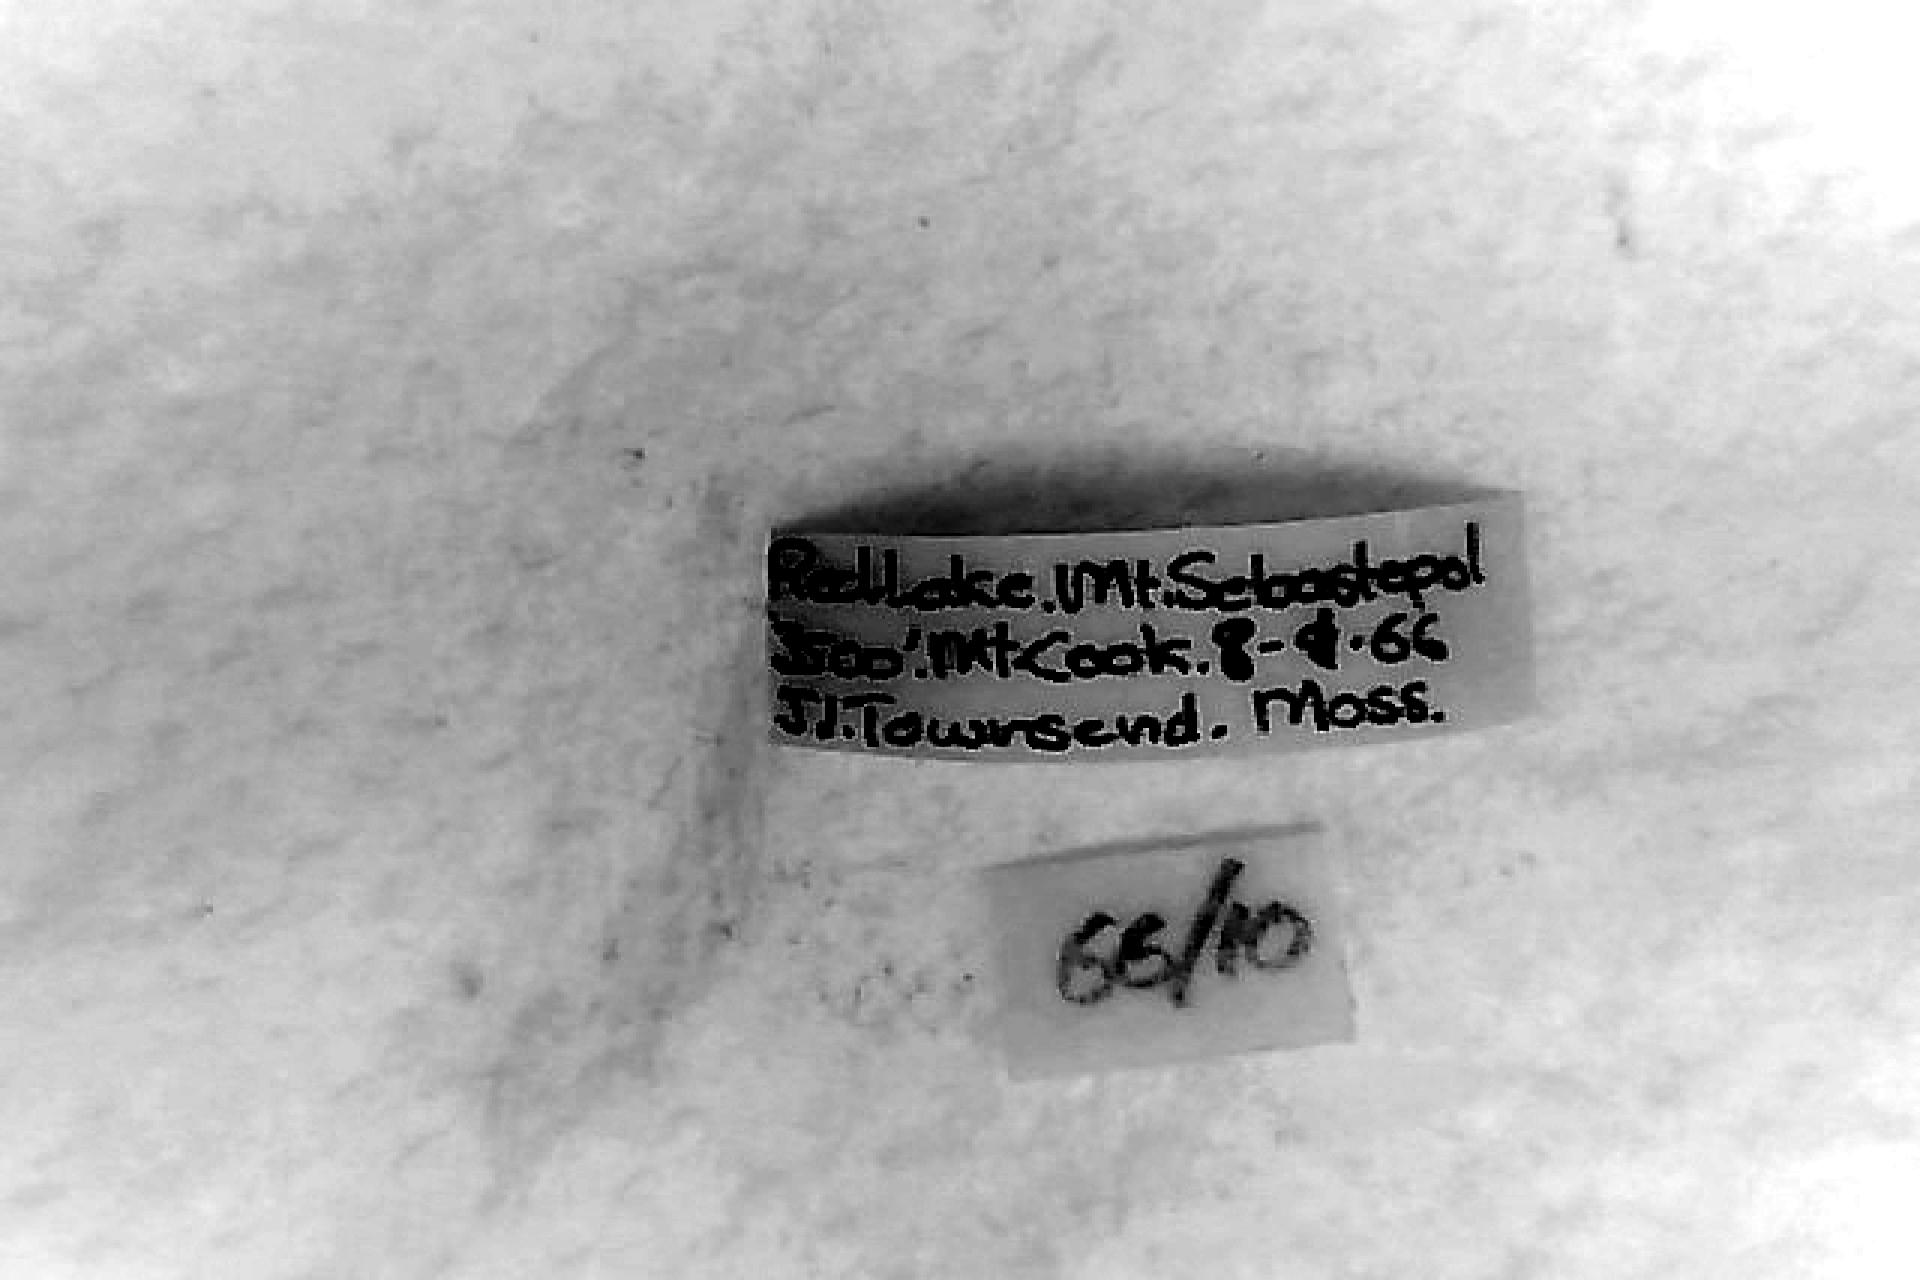 Red Lake. Mt. Sebastopol
3500'. Mt Cook. 8-4.66
J.I. Townsend. Moss.
66/10